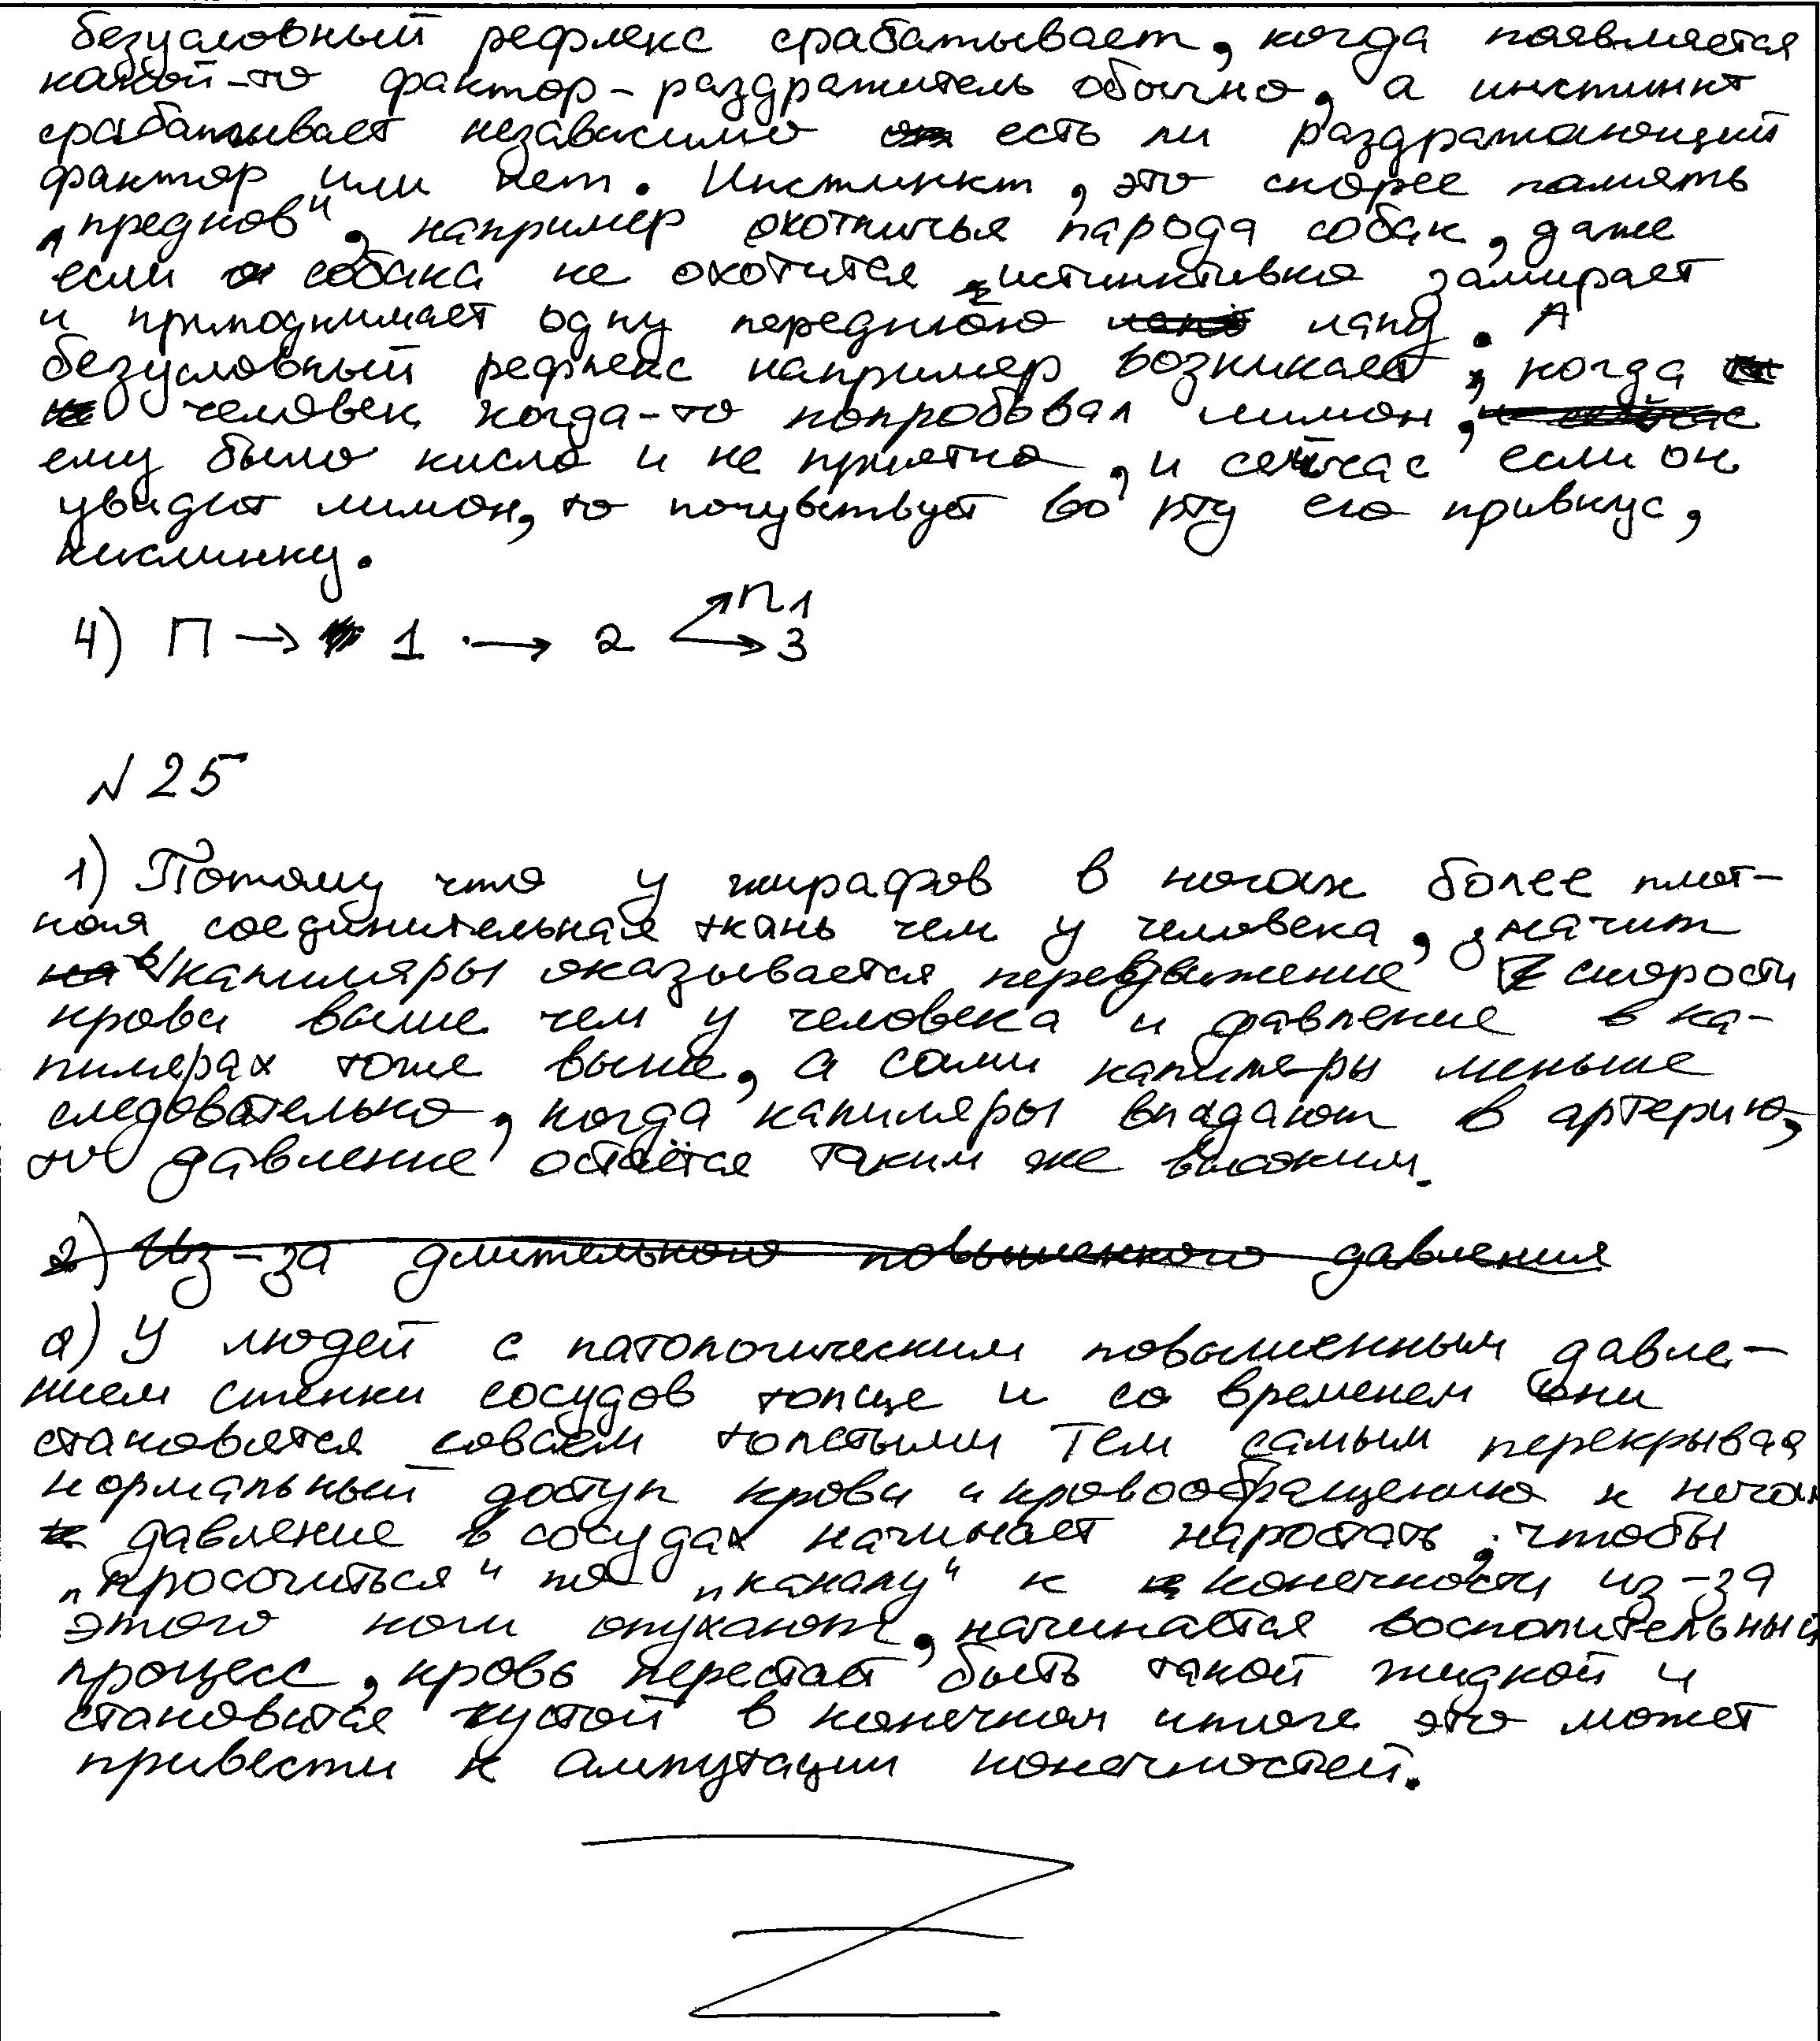 безусловный рефлекс срабатывает, когда появляется
какой-то фактор-раздражитель обычно, а инстинкт
срабатывает независимо есть ли раздражающий
фактор или нет. Инстинкт, это скорее память
„предков", например охотничья парода собак, даже
если собака не охотится, истинктивно замирает
и приподнимает одну переднюю лапу. А
безусловный рефлекс например возникает, когда
человек когда-то попробовал лимон,
ему было кисло и не приятно, и сейчас если он
увидит лимон, то почувствует во рту его привкус,
кислинку.
4) П → 1 → 2 ↗ П1
→ 3
N 25
1) Потому что у жирафов в ногах более плот-
ная соединительная ткань чем у человека, значит
в капиляры оказывается передвижение скорости
крови выше чем у человека и давление в ка-
пилярах тоже выше, а сами капиляры меньше
следовательно, когда капиляры впадают в артерию,
то давление остаётся таким же высоким.
2) Из-за длительного повышенного давления
2) У людей с патологическим повышенным давле-
нием стенки сосудов толще и со временем они
становятся совсем толстыми тем самым перекрывая
нормальный доступ крови и кровообращению к ногам
давление в сосудах начинает наростать, чтобы
„просочиться" по „каналу" к конечности из-за
этого ноги опухают, начинается восполительный
процесс, кровь перестаёт быть такой жидкой и
становится густой в конечном итоге это может
привести к ампутации конечностей.